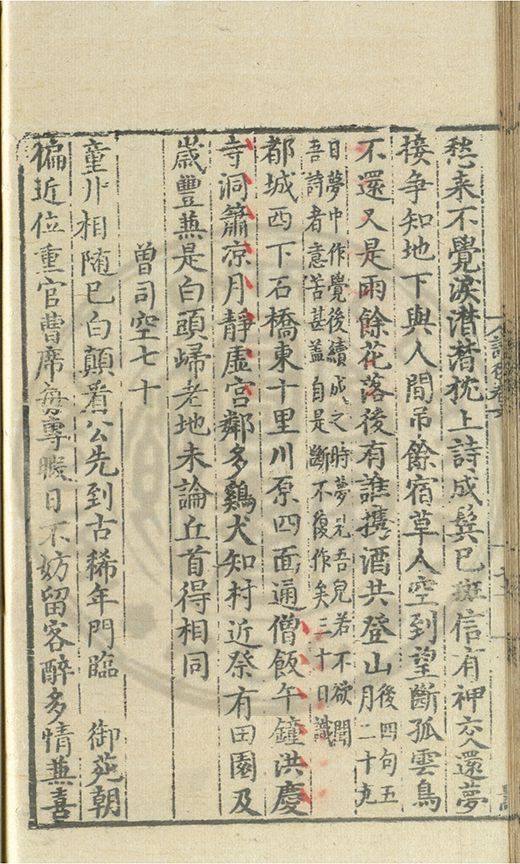 愁来不覺淚潸潸枕上詩成鬂已斑信有神交還夢
接争知地下與人間吊餘宿草人空到望斷孤雲鳥
不還又是雨餘花落後有誰携酒共登山後四句五月二十九
日夢中作覺後續成之時夢見吾兒若不欲聞
吾詩者意苦甚盖自是斷不復作矣三十日識
都城西下石橋東十里川原四面通僧飯午鐘洪慶
寺洞簫凉月靜虛宫鄰多鷄犬知村近祭有田園及
歲豐蕪是白頭歸老地未論丘首得相同
曾司空七十
童丱相随已白顛看公先到古稀年門臨 御苑朝
偏近位重官曹席每專暇日不妨留客醉多情蕪喜